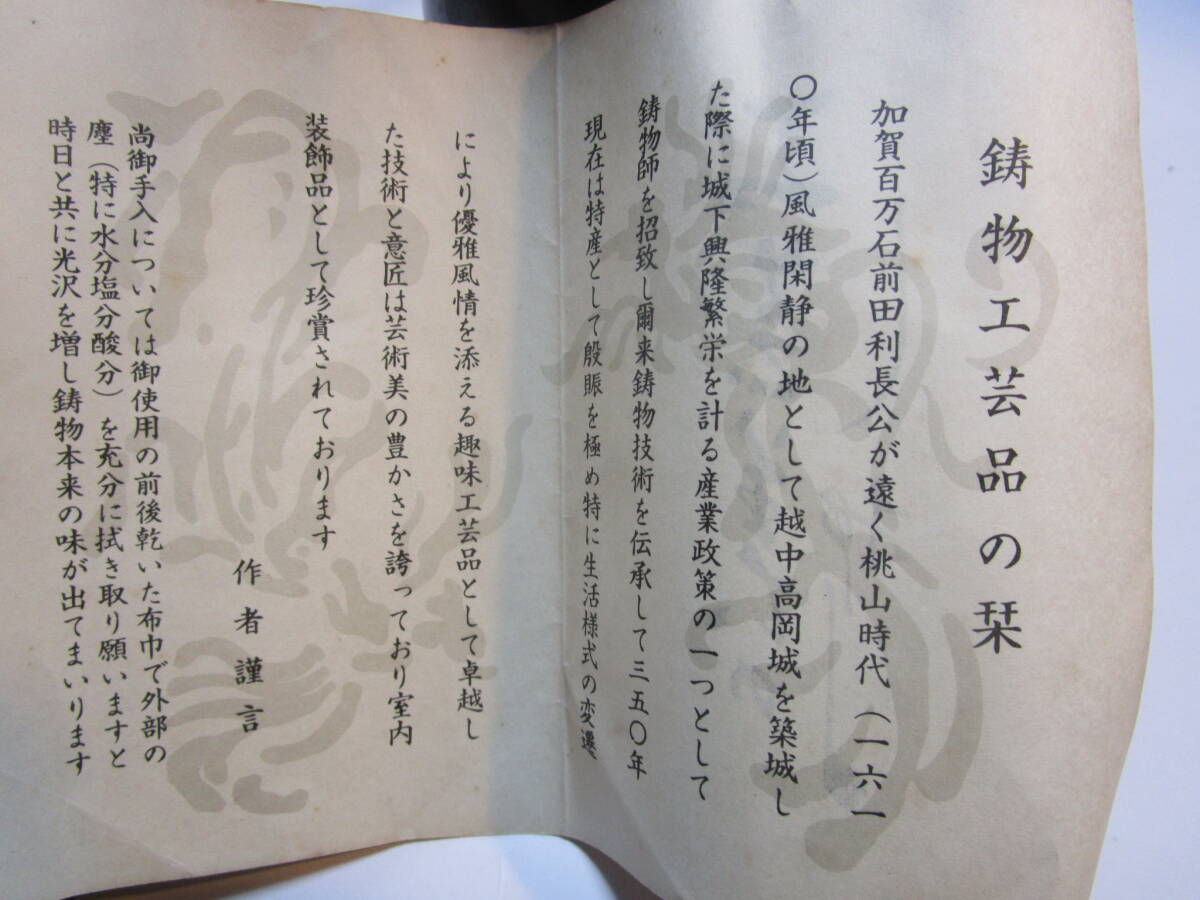 鋳物工芸品の栞
加賀百万石前田利長公が遠く桃山時代（一六一
〇年頃）風雅閑静の地として越中高岡城を築城し
た際に城下興隆繁栄を計る産業政策の一つとして
鋳物師を招致し爾来鋳物技術を伝承して三五〇年
現在は特産として殷賑を極め特に生活様式の変遷
により優雅風情を添える趣味工芸品として卓越し
た技術と意匠は芸術美の豊かさを誇っており室内
装飾品として珍賞されております
作者謹言
尚御手入については御使用の前後乾いた布巾で外部の
塵（特に水分塩分酸分）を充分に拭き取り願いますと
時日と共に光沢を増し鋳物本来の味が出てまいります